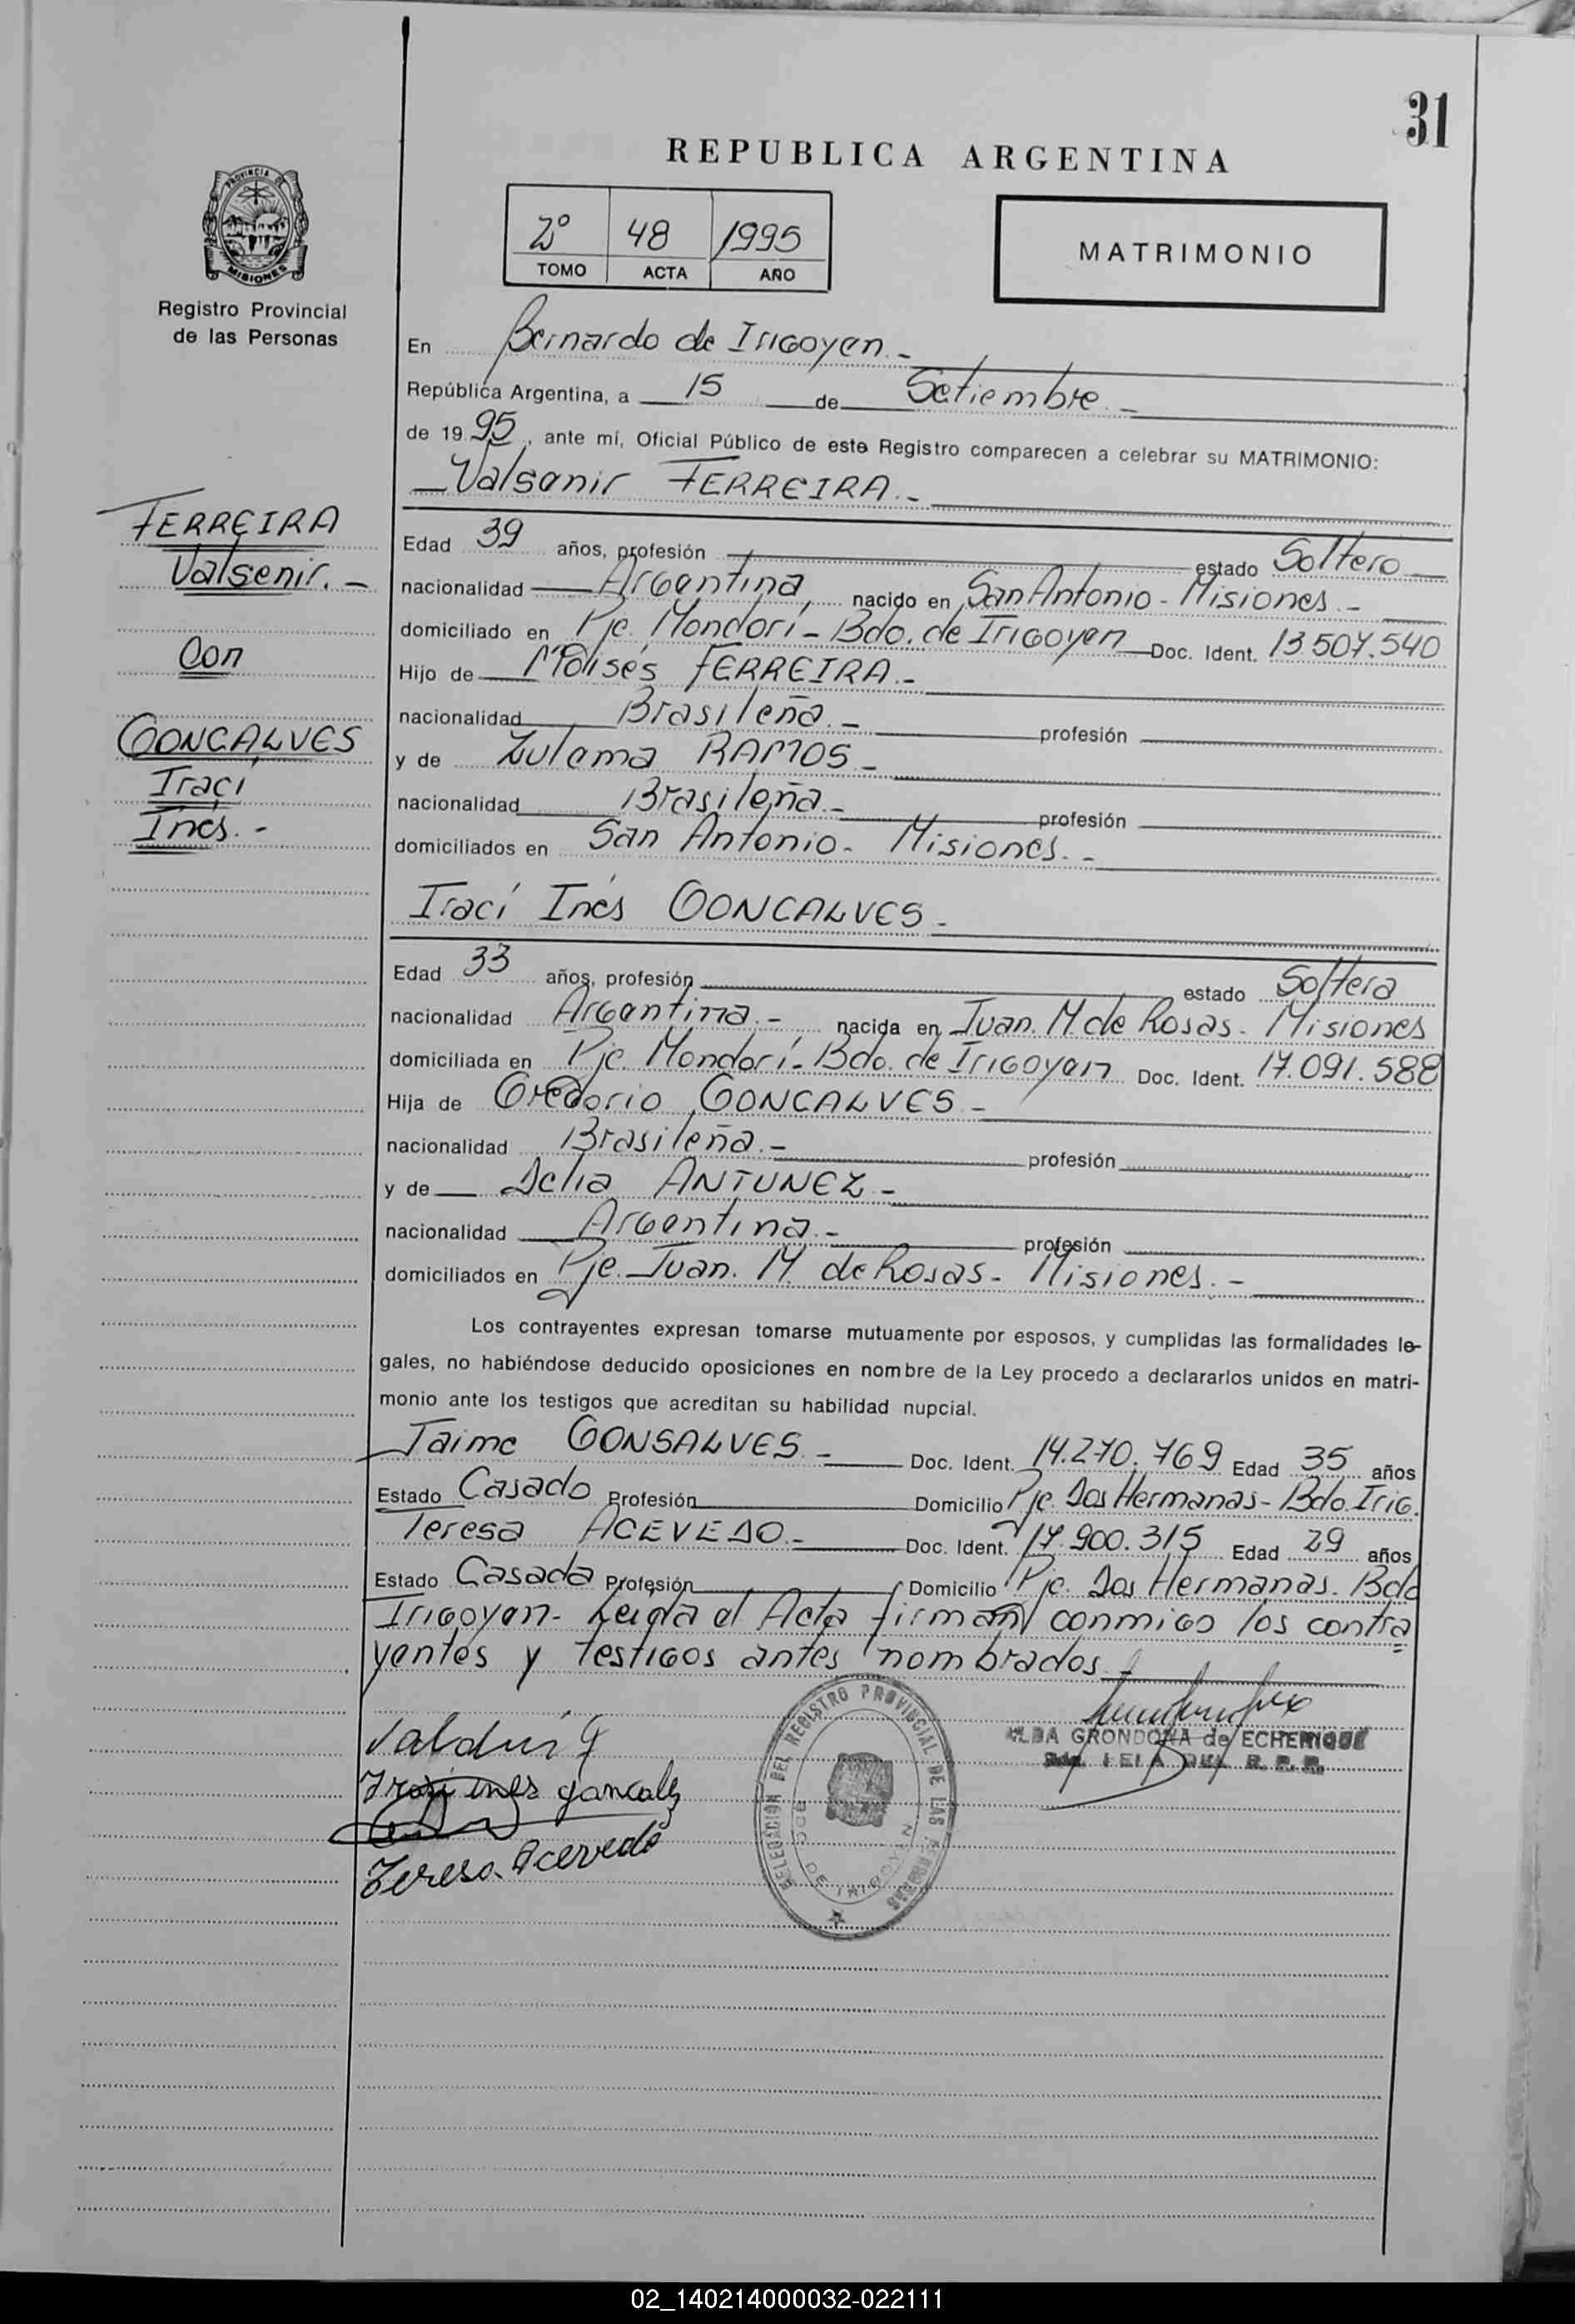 31
REPUBLICA ARGENTINA
PROVINCIA DE
MISIONES
Registro Provincial
de las Personas
2º 48 1995
TOMO ACTA AÑO
MATRIMONIO
En Bernardo de Irigoyen.-
República Argentina, a 15 de Setiembre.-
de 1995, ante mí, Oficial Público de este Registro comparecen a celebrar su MATRIMONIO:
Valsenir FERREIRA.-
FERREIRA
Valsenir.-
Con
GONCALVES
Iraci
Inés.-
Edad 39 años, profesión estado Soltero
nacionalidad Argentina, nacido en San Antonio - Misiones.-
domiciliado en Pje. Mondorí - Bdo. de Irigoyen Doc. Ident. 13.507.540
Hijo de Moisés FERREIRA.-
nacionalidad Brasileña.- profesión
y de Zulema RAMOS.-
nacionalidad Brasileña.- profesión
domiciliados en San Antonio - Misiones.-
Iraci Inés GONCALVES.-
Edad 33 años, profesión estado Soltera
nacionalidad Argentina.- nacida en Juan. M. de Rosas - Misiones
domiciliada en Pje. Mondorí - Bdo. de Irigoyen Doc. Ident. 17.091.588
Hija de Gregorio GONCALVES.-
nacionalidad Brasileña.- profesión
y de Delia ANTUNEZ.-
nacionalidad Argentina.- profesión
domiciliados en Pje. Juan. M. de Rosas - Misiones.-
Los contrayentes expresan tomarse mutuamente por esposos, y cumplidas las formalidades le-
gales, no habiéndose deducido oposiciones en nombre de la Ley procedo a declararlos unidos en matri-
monio ante los testigos que acreditan su habilidad nupcial.
Jaime GONSALVES.- Doc. Ident. 14.270.769 Edad 35 años
Estado Casado Profesión Domicilio Pje. Dos Hermanas - Bdo. Irig.
Teresa ACEVEDO.- Doc. Ident. 17.900.315 Edad 29 años
Estado Casada Profesión Domicilio Pje. Dos Hermanas. Bdo
Irigoyen - Leida el Acta firman conmigo los contra
yentes y testigos antes nombrados.-
DELEGACION DEL REGISTRO PROVINCIAL DE LAS PERSONAS
BDO. DE IRIGOYEN
ALBA GRONDONA de ECHERIQUE
DEL R.P.P.
Iraci ines goncalves
Teresa Acevedo
02_140214000032-022111